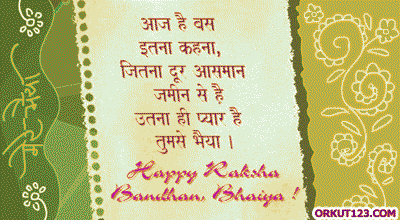 मेरे भैया
आज है बस
इतना कहना,
जितना दूर आसमान
जमीन से है
उतना ही प्यार है
तुमसे भैया ।
Happy Raksha
Bandhan, Bhaiya !
ORKUT123.COM